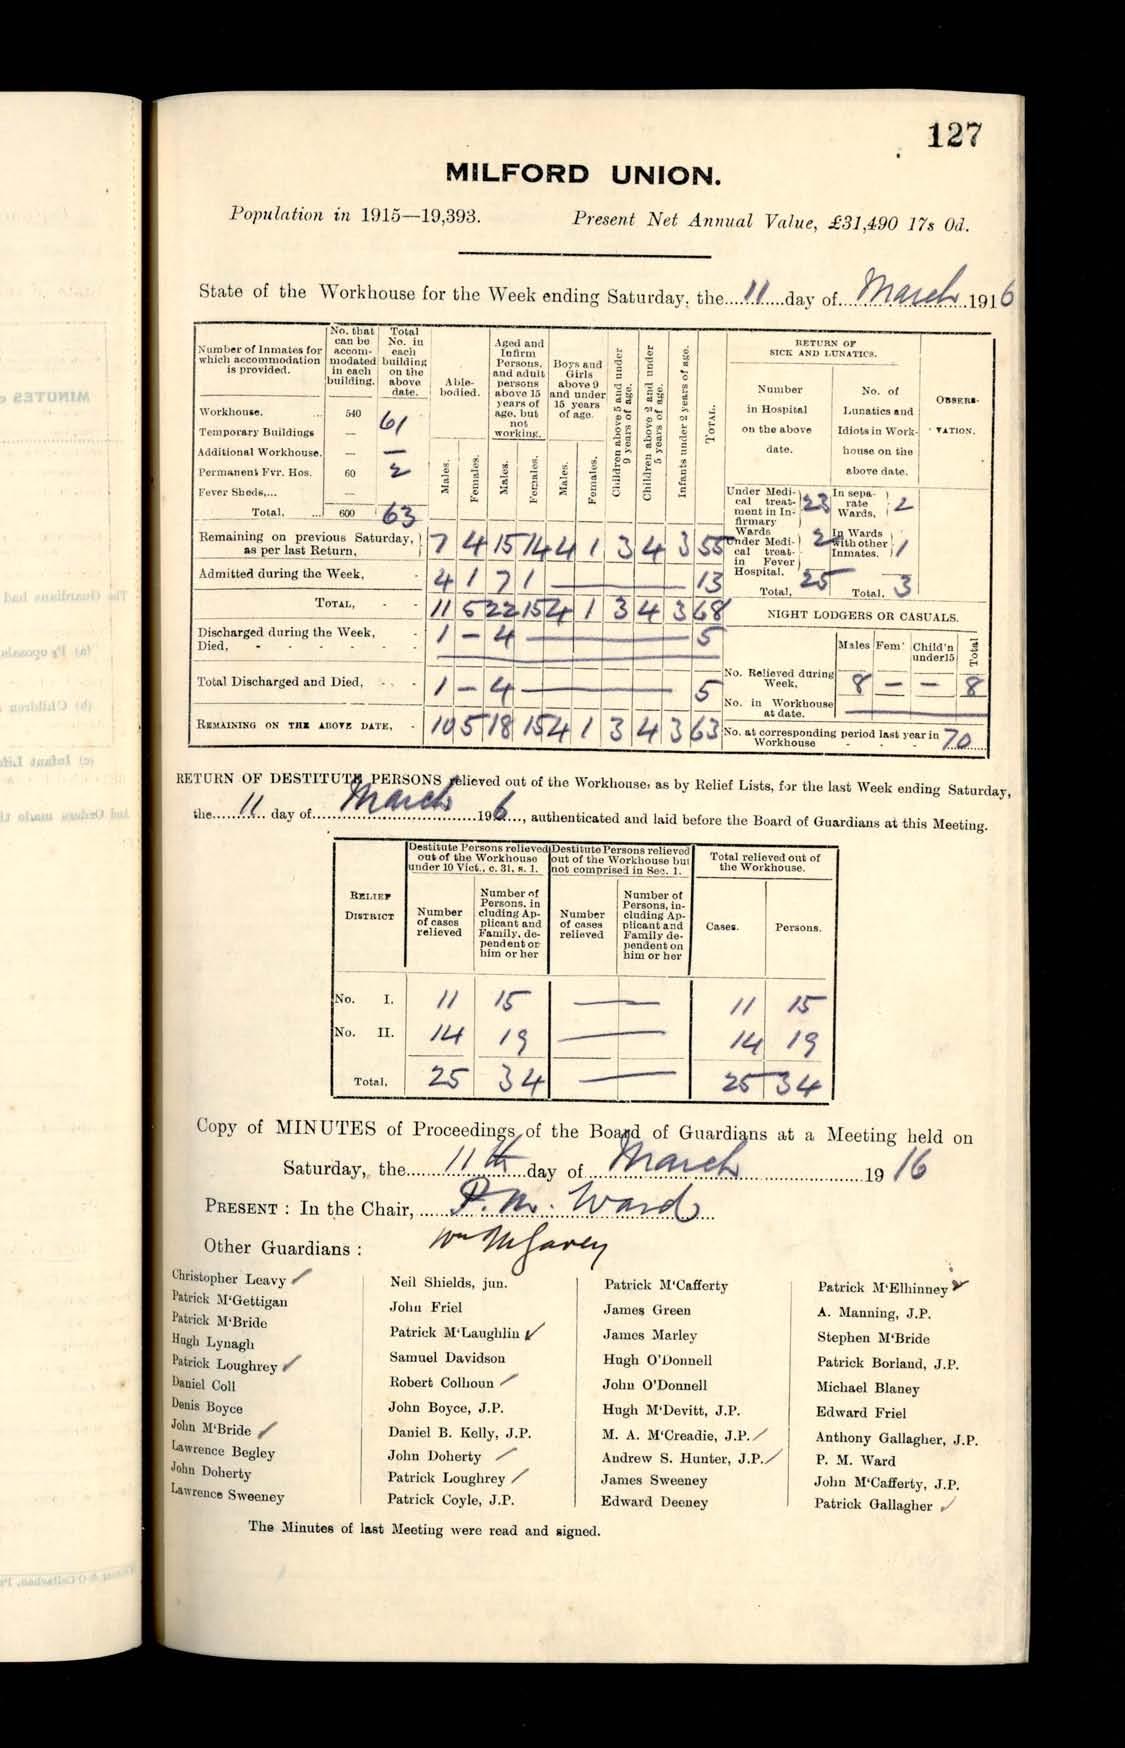 127
MILFORD UNION.
Population in 1915—19,393. Present Net Annual Value, £31,490 17s 0d.
State of the Workhouse for the Week ending Saturday, the 11 day of March 1916
Number of Inmates for which accommodation is provided.
No. that can be accommodated in each building.
Total No. in each building on the above date.
Able-bodied.
Aged and Infirm Persons, and adult persons above 15 years of age, but not working.
Boys and Girls above 9 and under 15 years of age.
Children above 5 and under 9 years of age.
Children above 2 and under 5 years of age.
Infants under 2 years of age.
TOTAL.
RETURN OF SICK AND LUNATICS.
Number in Hospital on the above date.
No. of Lunatics and Idiots in Workhouse on the above date.
OBSERVATION.
Males. Females. Males. Females. Males. Females.
Workhouse. ... 540 61
Temporary Buildings —
Additional Workhouse. — —
Permanent Fvr. Hos. 60 2
Fever Sheds,... —
Total, ... 600 63
Under Medical treatment in Infirmary Wards 23
In separate Wards, 2
Under Medical treat- in Fever Hospital. 2
In Wards with other Inmates. 1
Total, 25 Total, 3
Remaining on previous Saturday, as per last Return, 7 4 15 14 4 1 3 4 3 55
Admitted during the Week, - 4 1 7 1 — 13
TOTAL, - - 11 5 22 15 4 1 3 4 3 68
Discharged during the Week, - 1 – 4 — 5
Died, - - - - - - —
Total Discharged and Died, - - 1 – 4 — 5
REMAINING ON THE ABOVE DATE, - 10 5 18 15 4 1 3 4 3 63
NIGHT LODGERS OR CASUALS.
Males Fem' Child'n under 15 Total
No. Relieved during Week, 8 – – 8
No. in Workhouse at date. —
No. at corresponding period last year in Workhouse - - - 70
RETURN OF DESTITUTE PERSONS relieved out of the Workhouse, as by Relief Lists, for the last Week ending Saturday,
the 11 day of March 196, authenticated and laid before the Board of Guardians at this Meeting.
RELIEF DISTRICT
Destitute Persons relieved out of the Workhouse under 10 Vict., c. 31, s. 1.
Destitute Persons relieved out of the Workhouse but not comprised in Sec. 1.
Total relieved out of the Workhouse.
Number of cases relieved
Number of Persons, in cluding Applicant and Family, dependent on him or her
Number of cases relieved
Number of Persons, including Applicant and Family dependent on him or her
Cases. Persons.
No. I. 11 15 — 11 15
No. II. 14 19 — 14 19
Total, 25 34 — 25 34
Copy of MINUTES of Proceedings of the Board of Guardians at a Meeting held on
Saturday, the 11th day of March 1916
PRESENT : In the Chair, P. M. Ward
Other Guardians : Wm McGarvey
Christopher Leavy ✓
Patrick M'Gettigan
Patrick M'Bride
Hugh Lynagh
Patrick Loughrey ✓
Daniel Coll
Denis Boyce
John M'Bride ✓
Lawrence Begley
John Doherty
Lawrence Sweeney
Neil Shields, jun.
John Friel
Patrick M'Laughlin ✓
Samuel Davidson
Robert Colhoun ✓
John Boyce, J.P.
Daniel B. Kelly, J.P.
John Doherty ✓
Patrick Loughrey ✓
Patrick Coyle, J.P.
Patrick M'Cafferty
James Green
James Marley
Hugh O'Donnell
John O'Donnell
Hugh M'Devitt, J.P.
M. A. M'Creadie, J.P. ✓
Andrew S. Hunter, J.P. ✓
James Sweeney
Edward Deeney
Patrick M'Elhinney ✓
A. Manning, J.P.
Stephen M'Bride
Patrick Borland, J.P.
Michael Blaney
Edward Friel
Anthony Gallagher, J.P.
P. M. Ward
John M'Cafferty, J.P.
Patrick Gallagher ✓
The Minutes of last Meeting were read and signed.